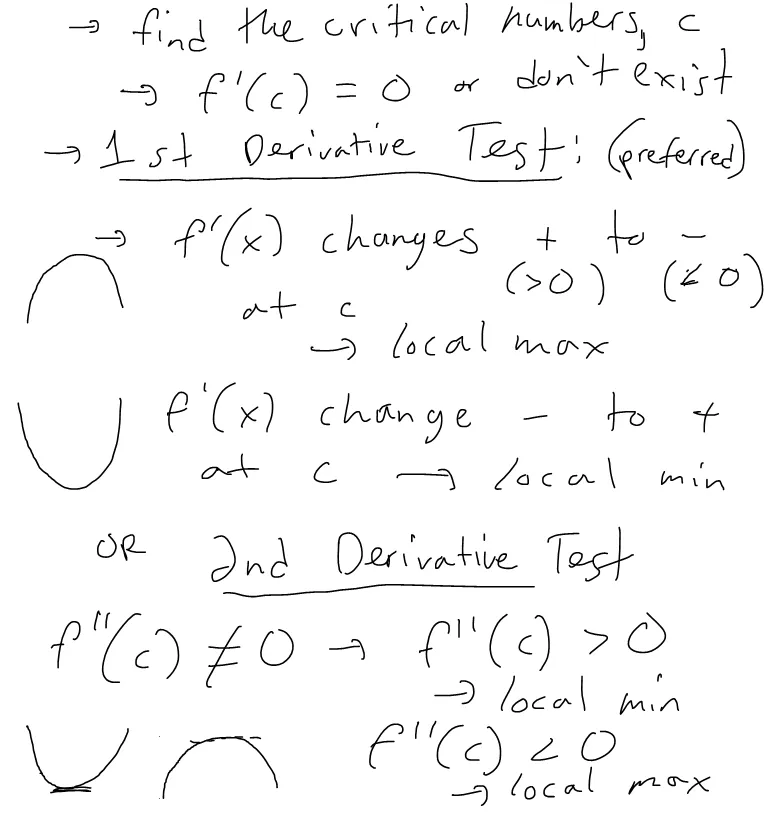 → find the critical numbers, c
→ f'(c) = 0 or don't exist
→ 1st Derivative Test: (preferred)
→ f'(x) changes + to -
(>0) (< 0)
at c
→ local max
f'(x) change - to +
at c → local min
OR 2nd Derivative Test
f''(c) ≠ 0 → f''(c) > 0
→ local min
f''(c) < 0
→ local max